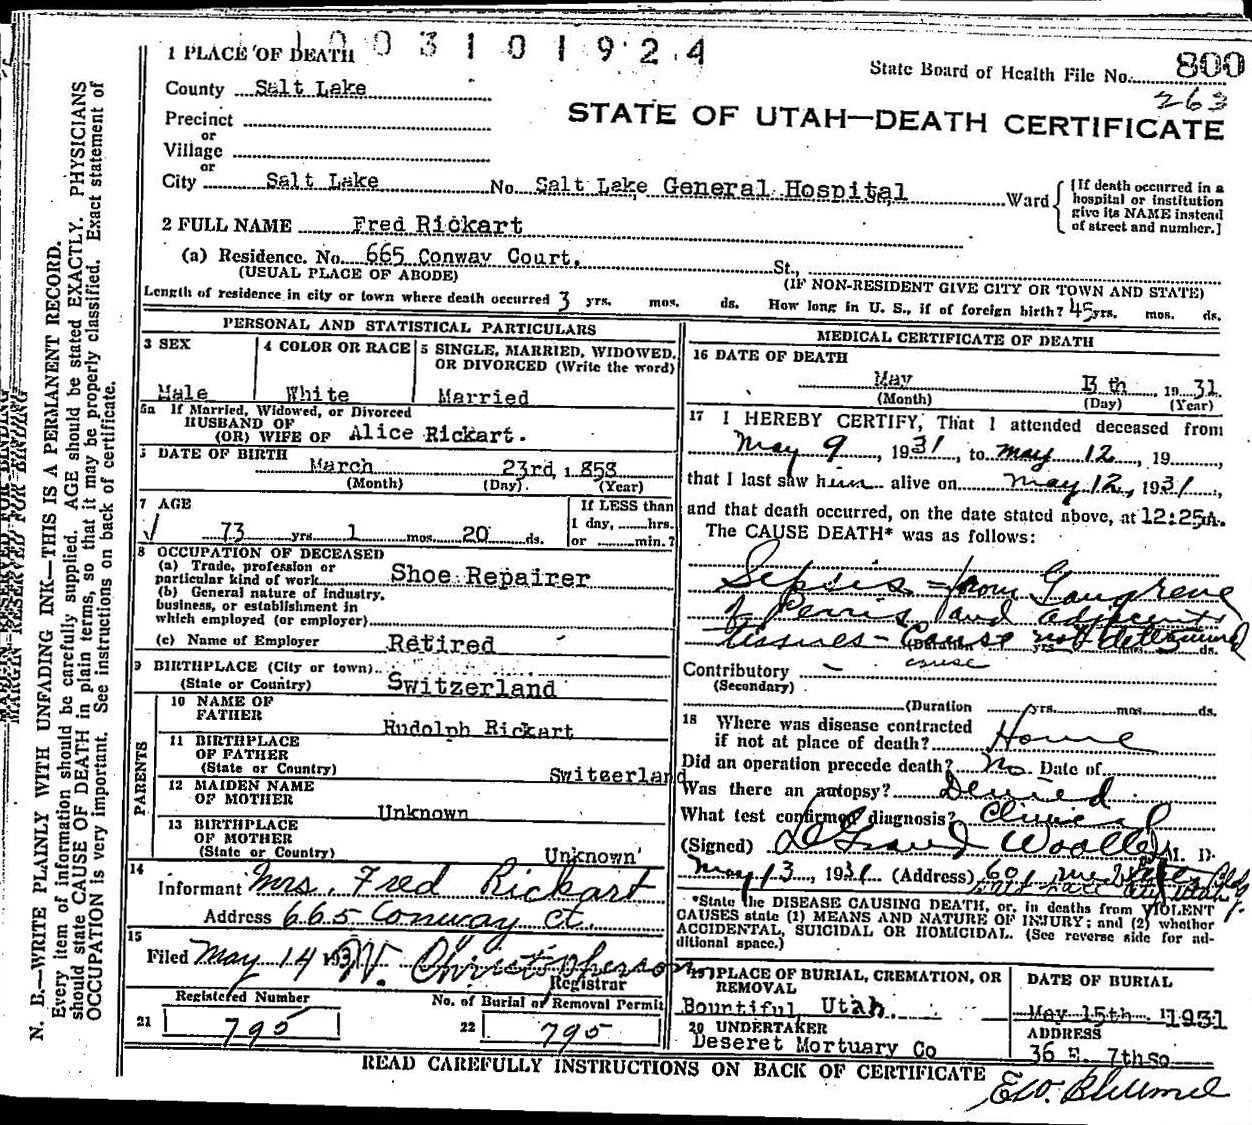 1003101924
1 PLACE OF DEATH
State Board of Health File No. 800
263
County Salt Lake
STATE OF UTAH—DEATH CERTIFICATE
Precinct
or
Village
or
City Salt Lake No. Salt Lake General Hospital Ward
[If death occurred in a
hospital or institution
give its NAME instead
of street and number.]
2 FULL NAME Fred Rickart
(a) Residence. No. 665 Conway Court. St.,
(USUAL PLACE OF ABODE)
(IF NON-RESIDENT GIVE CITY OR TOWN AND STATE)
Length of residence in city or town where death occurred 3 yrs. mos. ds. How long in U. S., if of foreign birth? 45 yrs. mos. ds.
PERSONAL AND STATISTICAL PARTICULARS
3 SEX
Male
4 COLOR OR RACE
White
5 SINGLE, MARRIED, WIDOWED,
OR DIVORCED (Write the word)
Married
5a If Married, Widowed, or Divorced
HUSBAND OF
(OR) WIFE OF Alice Rickart.
6 DATE OF BIRTH
March 23rd, 1858
(Month) (Day). (Year)
7 AGE
73 yrs 1 mos. 20 ds.
If LESS than
1 day, hrs.
or min.?
8 OCCUPATION OF DECEASED
(a) Trade, profession or
particular kind of work Shoe Repairer
(b) General nature of industry,
business, or establishment in
which employed (or employer)
(c) Name of Employer Retired
9 BIRTHPLACE (City or town)
(State or Country) Switzerland
PARENTS
10 NAME OF
FATHER Rudolph Rickart
11 BIRTHPLACE
OF FATHER
(State or Country) Switzerland
12 MAIDEN NAME
OF MOTHER Unknown
13 BIRTHPLACE
OF MOTHER
(State or Country) Unknown
14
Informant Mrs. Fred Rickart
Address 665 Conway Ct.
15
Filed May 14 1931 W. Christopherson
Registrar
Registered Number
21 795
No. of Burial or Removal Permit
22 795
MEDICAL CERTIFICATE OF DEATH
16 DATE OF DEATH
May 13th, 1931
(Month) (Day) (Year)
17 I HEREBY CERTIFY, That I attended deceased from
May 9, 1931, to May 12, 19
that I last saw him alive on May 12, 1931,
and that death occurred, on the date stated above, at 12:25A.
The CAUSE DEATH* was as follows:
Sepsis - from Gangrene
of Penis and adjacent
tissues - Cause not determined
(Duration yrs. mos. ds.
cause
Contributory
(Secondary)
(Duration yrs. mos. ds.
18 Where was disease contracted
if not at place of death? Home
Did an operation precede death? No. Date of
Was there an autopsy? Denied
What test confirmed diagnosis? Clinical
(Signed) Woolley M. D.
May 13, 1931 (Address) 601
*State the DISEASE CAUSING DEATH, or, in deaths from VIOLENT
CAUSES state (1) MEANS AND NATURE OF INJURY; and (2) whether
ACCIDENTAL, SUICIDAL OR HOMICIDAL. (See reverse side for ad-
ditional space.)
19 PLACE OF BURIAL, CREMATION, OR
REMOVAL
Bountiful, Utah.
DATE OF BURIAL
May 15th 1931
20 UNDERTAKER
Deseret Mortuary Co
ADDRESS
36 E. 7th So
READ CAREFULLY INSTRUCTIONS ON BACK OF CERTIFICATE
MARGIN RESERVED FOR BINDING
N. B.—WRITE PLAINLY WITH UNFADING INK—THIS IS A PERMANENT RECORD.
Every item of information should be carefully supplied. AGE should be stated EXACTLY. PHYSICIANS
should state CAUSE OF DEATH in plain terms, so that it may be properly classified. Exact statement of
OCCUPATION is very important. See instructions on back of certificate.